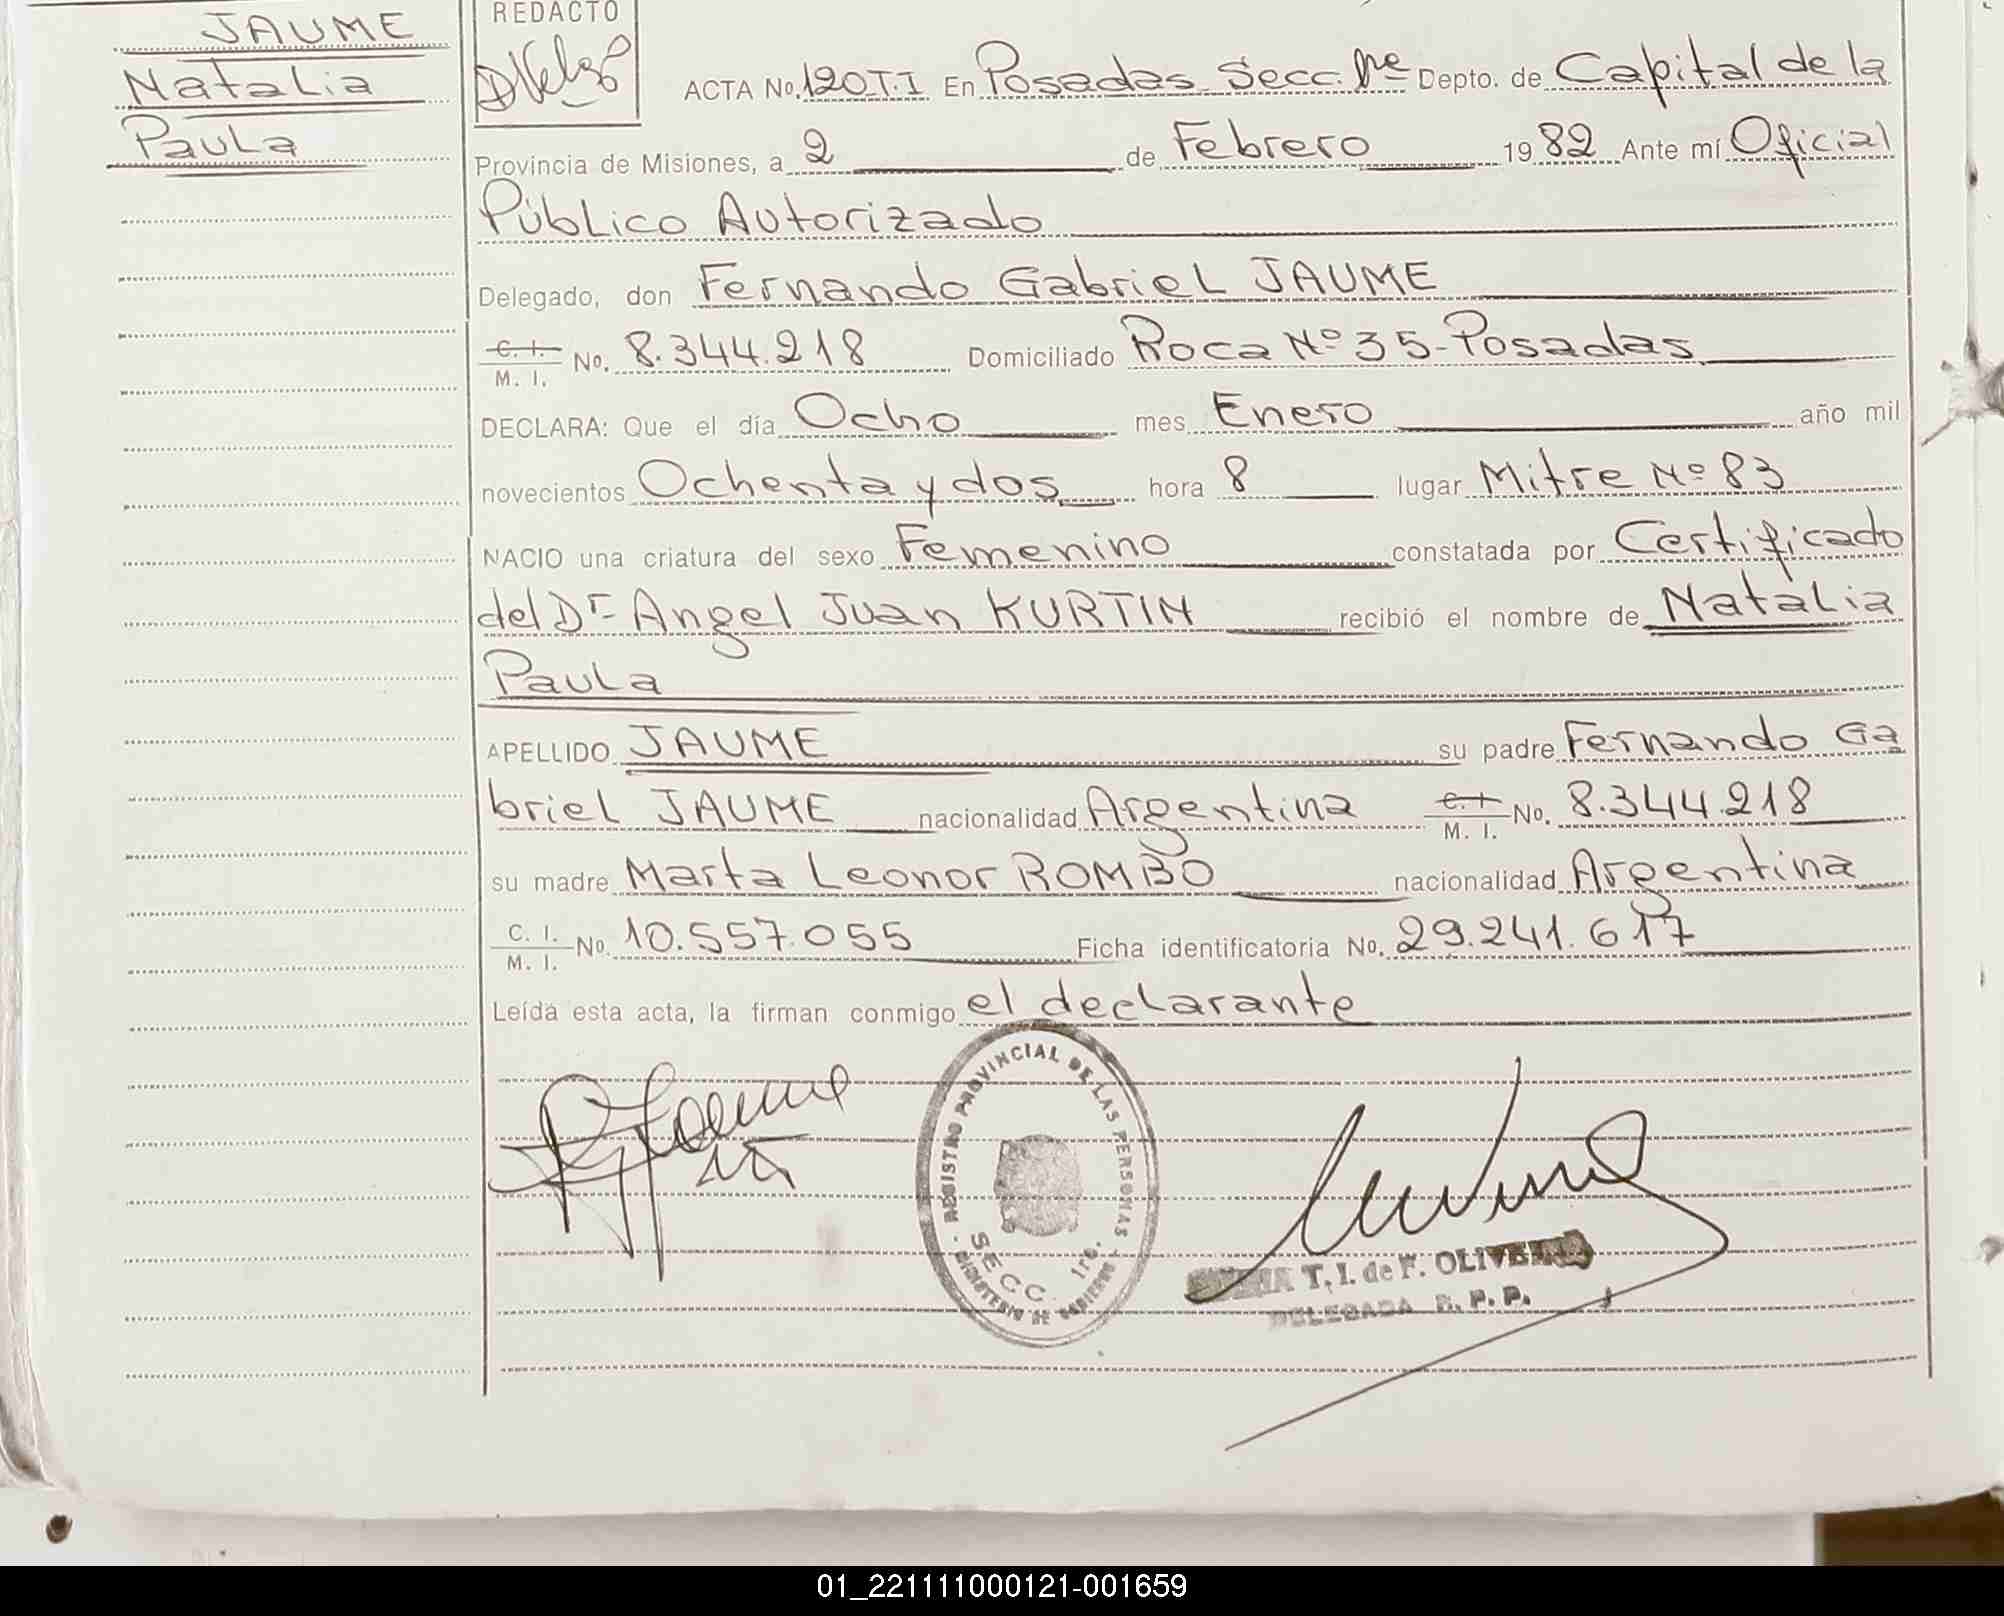 JAUME
Natalia
Paula
REDACTO
ACTA No. 120 T.I En Posadas Secc. 1ra Depto. de Capital de la
Provincia de Misiones, a 2 de Febrero 1982 Ante mí Oficial
Público Autorizado
Delegado, don Fernando Gabriel JAUME
C. I. M. I. No. 8.344.218 Domiciliado Roca Nº 35-Posadas
DECLARA: Que el día Ocho mes Enero año mil
novecientos Ochenta y dos hora 8 lugar Mitre Nº 83
NACIO una criatura del sexo Femenino constatada por Certificado
del Dr Angel Juan KURTIN recibió el nombre de Natalia
Paula
APELLIDO JAUME su padre Fernando Ga
briel JAUME nacionalidad Argentina C. I. M. I. No. 8.344.218
su madre Marta Leonor ROMBO nacionalidad Argentina
C. I. M. I. No. 10.557.055 Ficha identificatoria No. 29.241.617
Leída esta acta, la firman conmigo el declarante
REGISTRO PROVINCIAL DE LAS PERSONAS
SECC. 1ra.
MINISTERIO DE GOBIERNO
T. I. de F. OLIVEIRA
DELEGADA R. P. P.
01_221111000121-001659